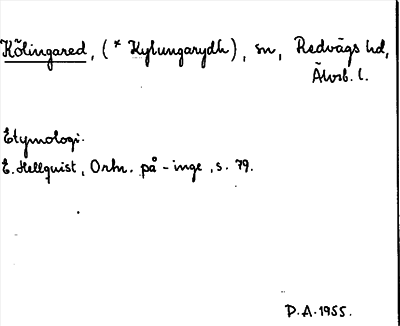 Kölingared, (* Kylungarydh), sn, Redvägs hd,
Älvsb. l.
Etymologi.
E. Hellquist, Ortn. på -inge, s. 79.
D.A. 1955.